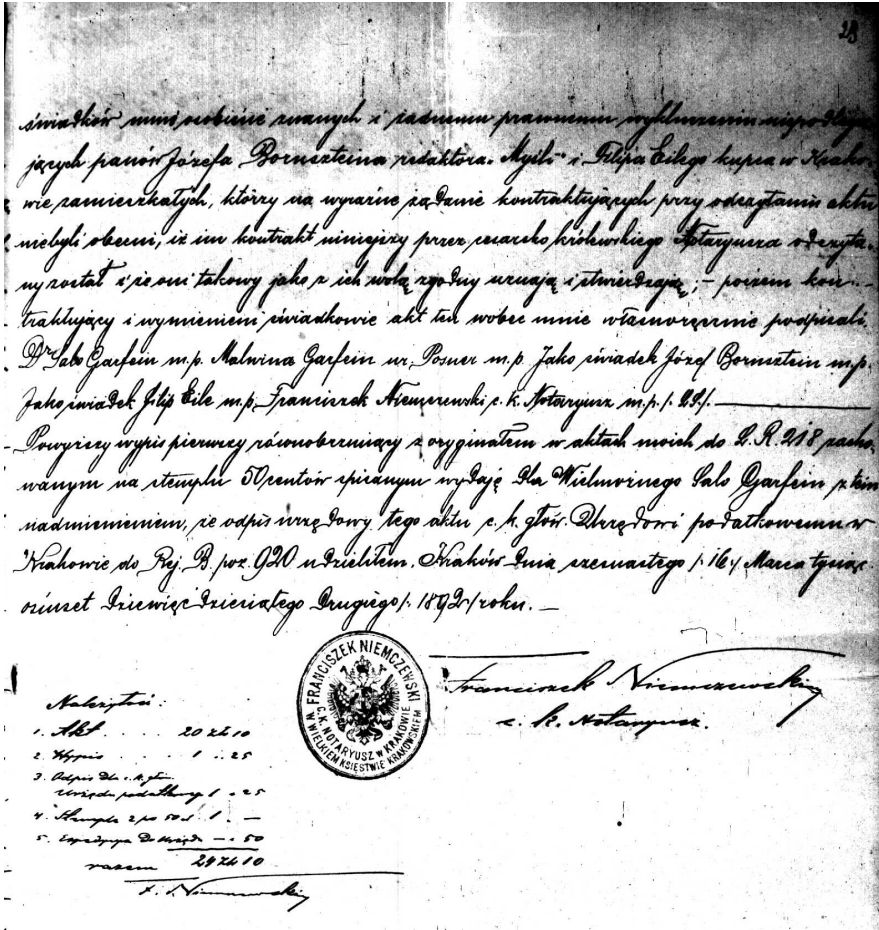 28
świadków mnie osobiście znanych i żadnemu prawnemu wykluczeniu niepodlega-
jących panów Józefa Bornsteina redaktora „Myśli” i Filipa Eilego kupca w Krako-
wie zamieszkałych, którzy na wyraźne żądanie kontraktujących przy odczytaniu aktu
niebyli obecni, iż im kontrakt niniejszy przez cesarsko królewskiego Notaryusza odczyta-
ny został i że oni takowy jako z ich wolą zgodny uznają i stwierdzają; – poczem kon-
traktujący i wymienieni świadkowie akt ten wobec mnie własnoręcznie podpisali.
Dr Salo Garfein m.p. Malwina Garfein ur. Posner m.p. Jako świadek Józef Bornsztein m.p.
Jako świadek Filip Eile m.p. Franciszek Niemczewski c. k. Notaryusz m.p. /: L.S./. —
Powyższy wypis pierwszy równobrzmiący z oryginałem w aktach moich do L.R. 218 zacho-
wanym na stemplu 50 centów spisanym wydaję dla Wielmożnego Salo Garfein z tem
nadmienieniem, że odpis urzędowy tego aktu c. k. głów. Urzędowi podatkowemu w
Krakowie do Rej. B. poz. 920 udzieliłem. Kraków dnia szesnastego /: 16 :/ Marca tysiąc
ośmset dziewięćdziesiątego drugiego /: 1892 :/ roku. —
Franciszek Niemczewski
c. k. Notaryusz.
FRANCISZEK NIEMCZEWSKI
C.K. NOTARYUSZ W KRAKOWIE
W WIELKIEM KSIĘSTWIE KRAKOWSKIEM
Należytości:
1. Akt . . . . 20 zł 10
2. Wypis . . . . 1 „ 25
3. Odpis dla c. k. głów.
Urzędu podatkowego 1 „ 25
4. Stemple 2 po 50 ct. 1 „ —
5. Ekspedycya do Urzędu — „ 50
razem 24 zł 10
F. Niemczewski